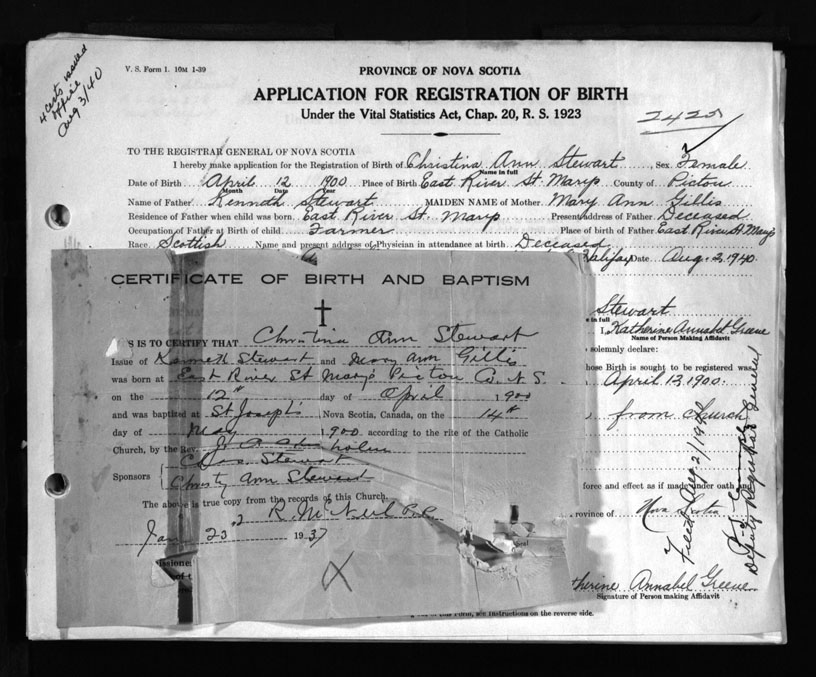 4 certs issued
office
Aug 3/40
V. S. Form 1. 10M 1-39
PROVINCE OF NOVA SCOTIA
APPLICATION FOR REGISTRATION OF BIRTH
Under the Vital Statistics Act, Chap. 20, R. S. 1923
2425
TO THE REGISTRAR GENERAL OF NOVA SCOTIA
I hereby make application for the Registration of Birth of Christina Ann Stewart, Sex Famale
Name in full
Date of Birth April 12 1900 Place of Birth East River St. Marys County of Pictou
Month Date Year
Name of Father Kenneth Stewart MAIDEN NAME of Mother Mary Ann Gillis
Residence of Father when child was born. East River St. Marys Present address of Father Deceased
Occupation of Father at Birth of child Farmer Place of birth of Father East River St Marys
Race. Scottish Name and present address of Physician in attendance at birth Deceased
Halifax Date Aug. 2, 1940.
CERTIFICATE OF BIRTH AND BAPTISM
IS IS TO CERTIFY THAT Christina Ann Stewart
Issue of Kenneth Stewart and Mary Ann Gillis
was born at East River St Mary's Pictou Co N.S.
on the 12th day of April 1900
and was baptized at St Joseph's Nova Scotia, Canada, on the 14th
day of May 1900 according to the rite of the Catholic
Church, by the Rev.
Chas. Stewart
Sponsors
Christy Ann Stewart
The above is true copy from the records of this Church.
R. McNeil P.P.
Jan 23 1937
X
Stewart
in full
I, Katherine Annabel Greene
Name of Person Making Affidavit
solemnly declare:
hose Birth is sought to be registered was
April 12, 1900.
from church
force and effect as if made under oath and
rovince of Nova Scotia
Filed Aug. 2/1940
Deputy Registrar General
therine Annabel Greene
Signature of Person making Affidavit
of this Form, see instructions on the reverse side.